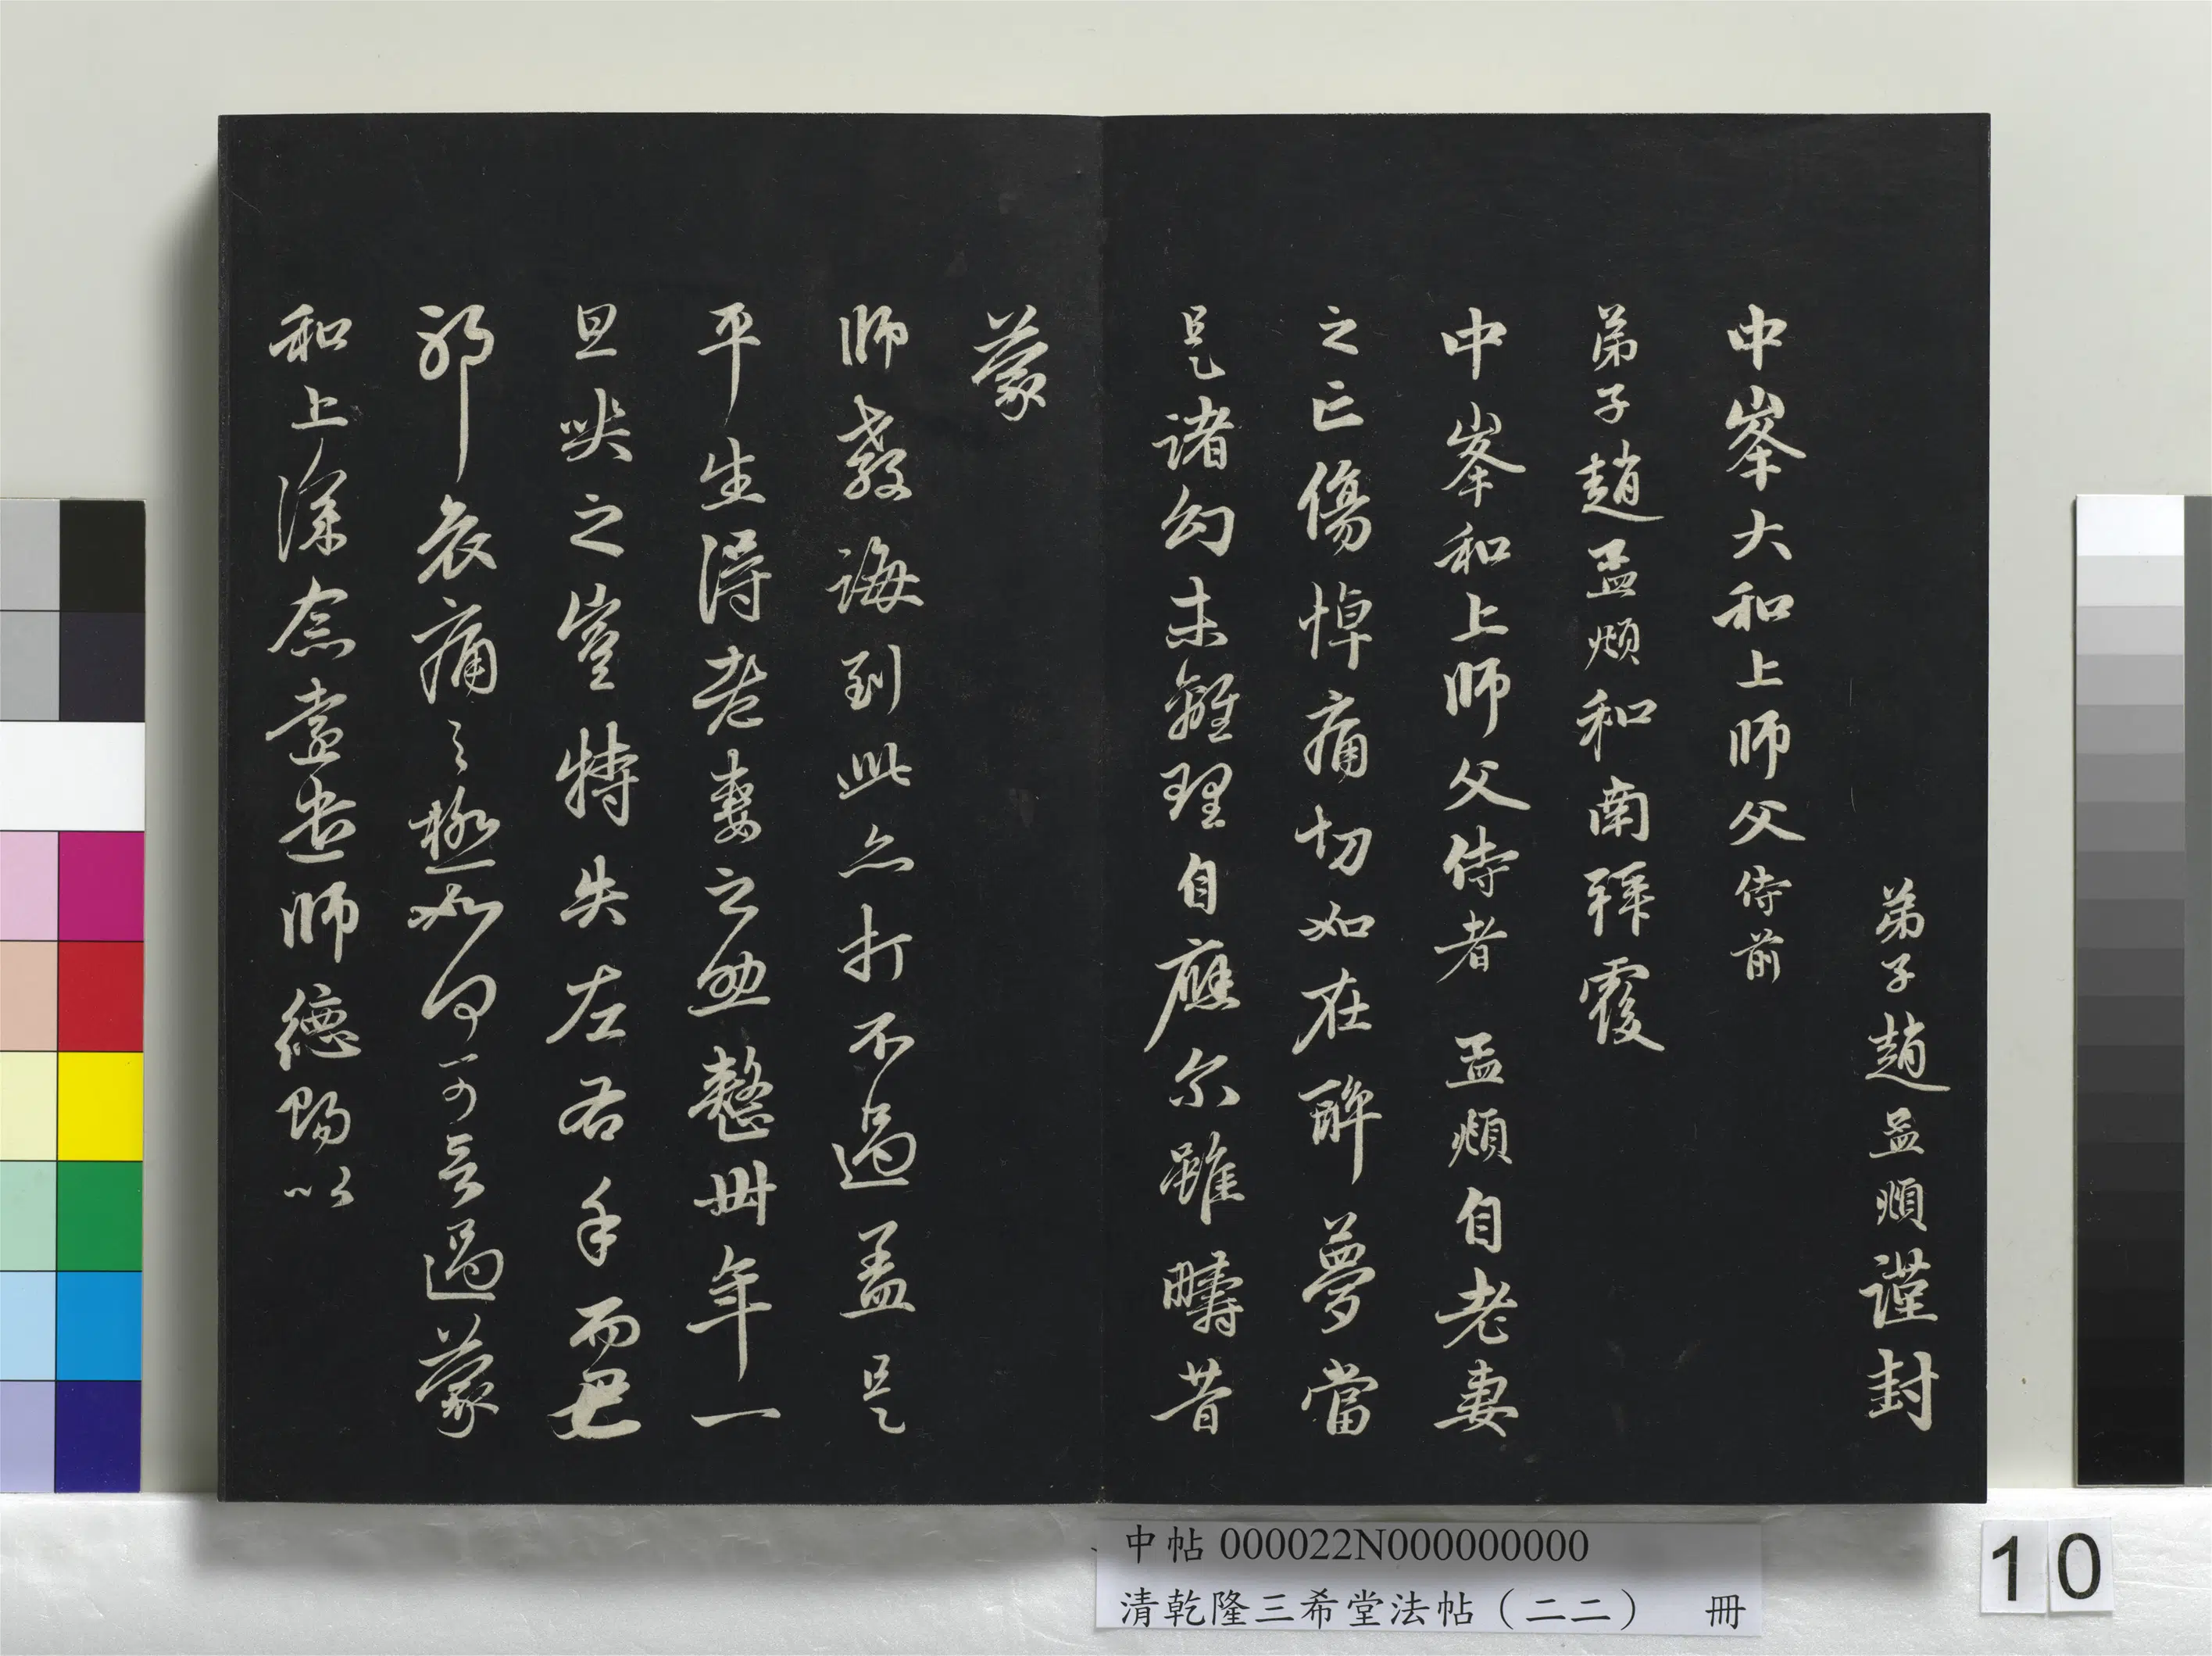 弟子趙孟頫謹封
中峯大和上師父侍前
弟子趙孟頫和南拜覆
中峯和上師父侍者孟頫自老妻
之亡傷悼痛切如在醉夢當
是諸幻未離理自應尔雖疇昔
蒙
師教誨到此亦打不過蓋是
平生得老妻之助整卅年一
旦哭之豈特失左右手而已
耶哀痛之極如何可言過蒙
和上深念遠遣師德賜以
中帖 000022N000000000
清乾隆三希堂法帖（二二） 冊
10